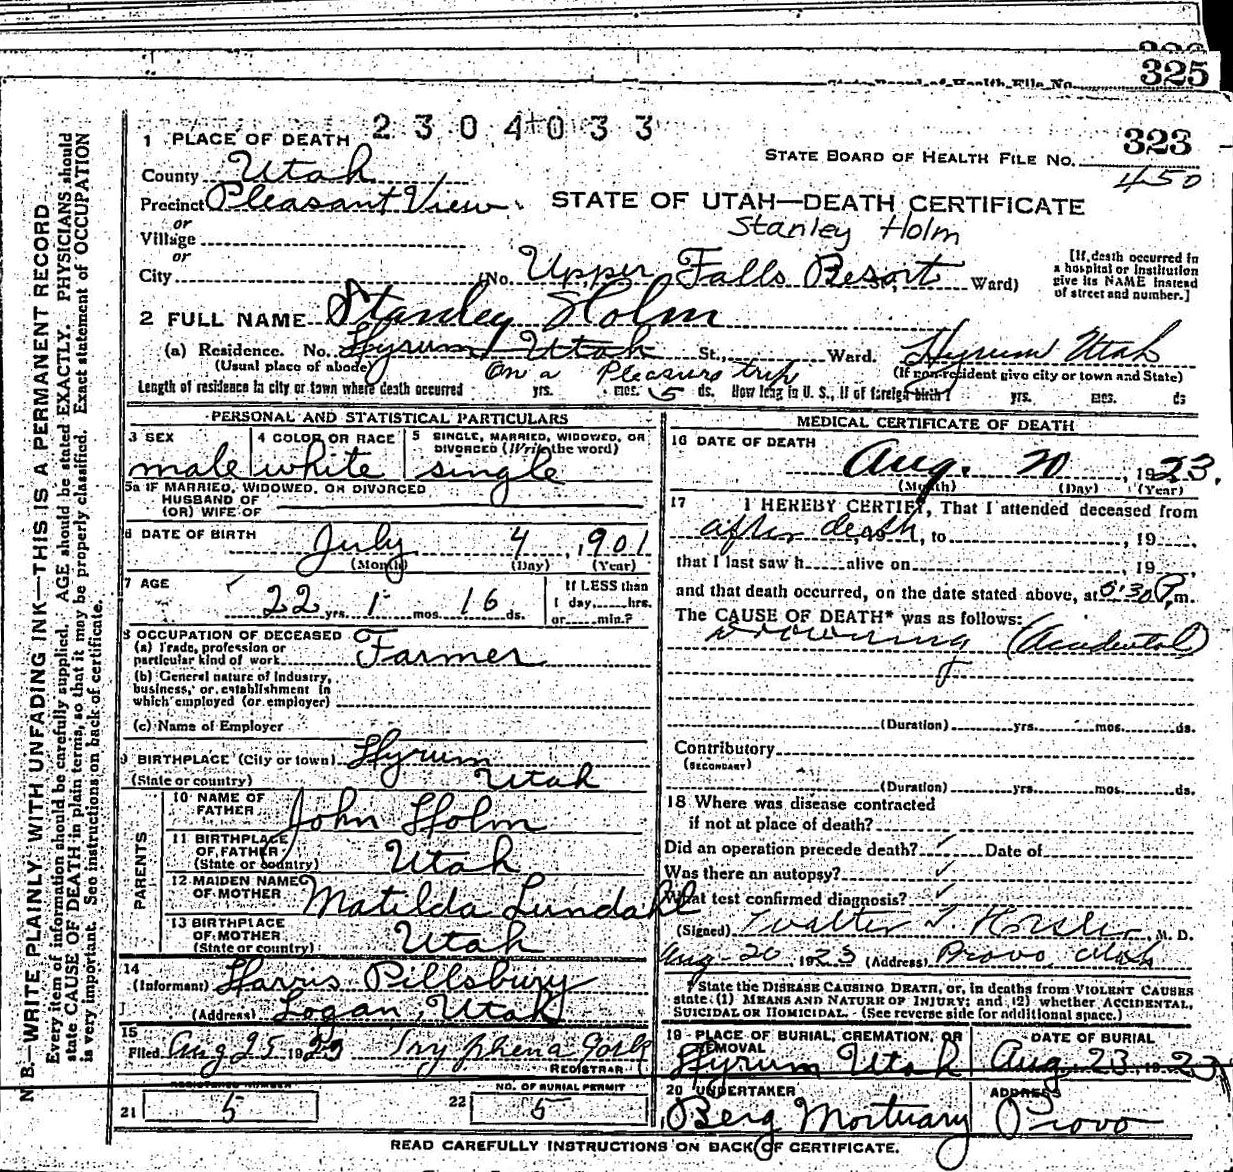 325
State Board of Health File No.
2304033
323
1 PLACE OF DEATH
STATE BOARD OF HEALTH FILE No.
450
County Utah
Precinct Pleasant View
STATE OF UTAH—DEATH CERTIFICATE
or
Village
Stanley Holm
or
City (No. Upper Falls Resort St., Ward)
[If death occurred in
a hospital or institution
give its NAME instead
of street and number.]
2 FULL NAME Stanley Holm
(a) Residence. No. Hyrum Utah St., Ward. Hyrum Utah
(Usual place of abode) (If non-resident give city or town and State)
On a Pleasure trip
Length of residence in city or town where death occurred yrs. mos. 5 ds. How long in U. S., if of foreign birth? yrs. mos. ds
PERSONAL AND STATISTICAL PARTICULARS
3 SEX
male
4 COLOR OR RACE
white
5 SINGLE, MARRIED, WIDOWED, OR
DIVORCED (Write the word)
single
5a IF MARRIED, WIDOWED, OR DIVORCED
HUSBAND OF
(OR) WIFE OF
6 DATE OF BIRTH
July 4, 1901
(Month) (Day) (Year)
7 AGE
22 yrs. 1 mos. 16 ds.
If LESS than
1 day, hrs.
or min.?
8 OCCUPATION OF DECEASED
(a) Trade, profession or
particular kind of work Farmer
(b) General nature of Industry,
business, or establishment in
which employed (or employer)
(c) Name of Employer
9 BIRTHPLACE (City or town) Hyrum
(State or country) Utah
PARENTS
10 NAME OF
FATHER John Holm
11 BIRTHPLACE
OF FATHER
(State or country) Utah
12 MAIDEN NAME
OF MOTHER Matilda Lundahl
13 BIRTHPLACE
OF MOTHER
(State or country) Utah
14
(Informant) Harris Pillsbury
(Address) Logan, Utah
15
Filed Aug 25 1923 Tryphena York
REGISTRAR
REGISTERED NUMBER
21 5
NO. OF BURIAL PERMIT
22 5
MEDICAL CERTIFICATE OF DEATH
16 DATE OF DEATH
Aug. 20, 1923.
(Month) (Day) (Year)
17 I HEREBY CERTIFY, That I attended deceased from
after death, 19, to, 19
that I last saw h alive on, 19
and that death occurred, on the date stated above, at 6:30 P m.
The CAUSE OF DEATH* was as follows:
Drowning (Accidental)
(Duration) yrs. mos. ds.
Contributory
(SECONDARY)
(Duration) yrs. mos. ds.
18 Where was disease contracted
if not at place of death?
Did an operation precede death? Date of
Was there an autopsy?
What test confirmed diagnosis?
(Signed) Walter T Hasler, M. D.
Aug 20 1923 (Address) Provo, Utah
*State the DISEASE CAUSING DEATH, or, in deaths from VIOLENT CAUSES
state (1) MEANS AND NATURE OF INJURY; and (2) whether ACCIDENTAL,
SUICIDAL OR HOMICIDAL. (See reverse side for additional space.)
19 PLACE OF BURIAL, CREMATION, OR
REMOVAL
Hyrum Utah
DATE OF BURIAL
Aug. 23, 1923
20 UNDERTAKER
Berg Mortuary
ADDRESS
Provo
READ CAREFULLY INSTRUCTIONS ON BACK OF CERTIFICATE.
N. B.—WRITE PLAINLY WITH UNFADING INK—THIS IS A PERMANENT RECORD
Every item of information should be carefully supplied. AGE should be stated EXACTLY. PHYSICIANS should
state CAUSE OF DEATH in plain terms, so that it may be properly classified. Exact statement of OCCUPATION
is very important. See instructions on back of certificate.